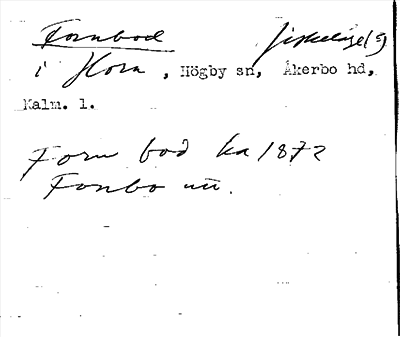 Fornbod fiskeläge(s)
i Horn, Högby sn, Åkerbo hd,
Kalm. l.
Forn bod ka 1872
Fonbo nu.